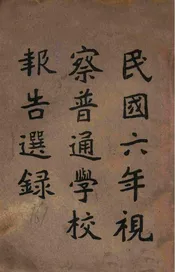 民國六年視
察普通學校
報告選録